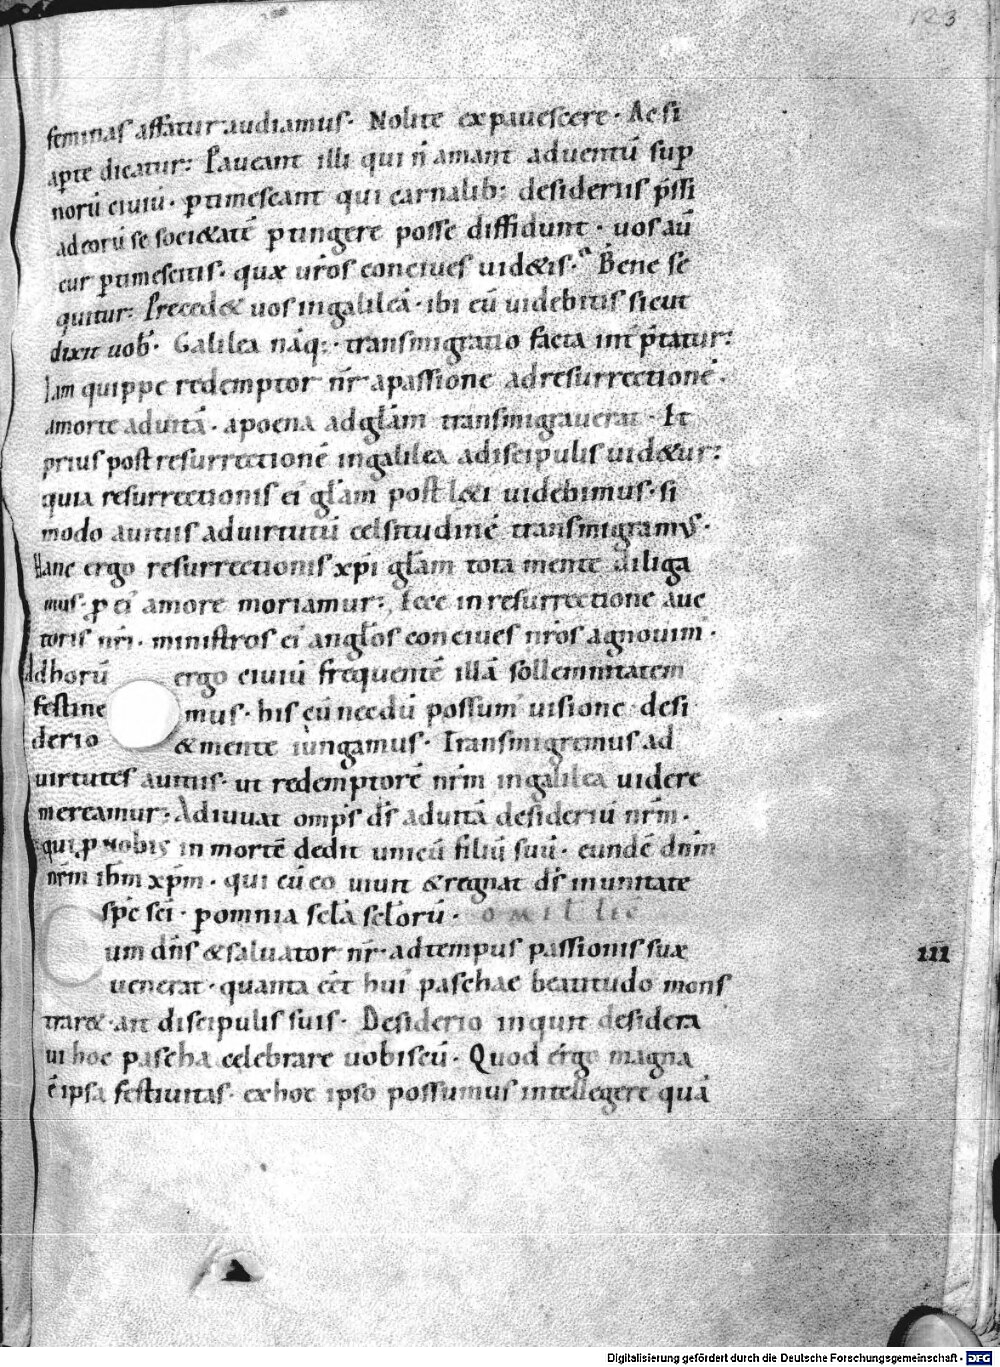 123
feminas affatur audiamus. Nolite expauescere. Ac si
apte dicatur: Paueant illi qui ñ amant aduentū sup
norū ciuiū. ptimescant qui carnalib; desideriis p̄ssi
ad eorū se societatē ptingere posse diffidunt. uos aū
cur ptimescitis. quæ ur̄os conciues uidetis? Bene se
quitur: Precedet uos in galileā. ibi eū uidebitis sicut
dixit uob̄. Galilea nāq;. transmigratio facta int p̄tatur:
Iam quippe redemptor nr̄ a passione ad resurrectionē.
a morte ad uitā. a poena ad gl̄am transmigrauerat. Et
prius post resurrectionē in galilea a discipulis uidetur:
quia resurrectionis ei' gl̄am post leti uidebimus. si
modo a uitiis ad uirtutū celsitudinē transmigramus.
Hanc ergo resurrectionis xp̄i gl̄am tota mente diliga
mus. p ei' amore moriamur; Ecce in resurrectione auc
toris nr̄i. ministros ei' angl̄os conciues nr̄os agnouim'.
Ad horū ergo ciuiū frequentē illā sollemnitatem
festine mus. his cū necdū possum' uisione. desi
derio & mente iungamus. Transmigremus ad
uirtutes a uitiis. ut redemptorē nr̄m in galilea uidere
mereamur: Adiuuat omp̄s d̄s ad uitā desideriū nr̄m.
qui p nobis in mortē dedit unicū filiū suū. eundē dn̄m
nr̄m ih̄m xp̄m. qui cū eo uiuit & regnat d̄s in unitate
sp̄c sc̄i. p omnia scl̄a scl̄orū. omiliē
Cum dn̄s & saluator nr̄. ad tempus passionis suæ
III
uenerat. quanta eēt hui' paschae beatitudo mons
traret. ait discipulis suis. Desiderio inquit desidera
ui hoc pascha celebrare uobiscū. Quod ergo magna
ē ipsa festiuitas. ex hoc ipso possumus intellegere quā
Digitalisierung gefördert durch die Deutsche Forschungsgemeinschaft - DFG